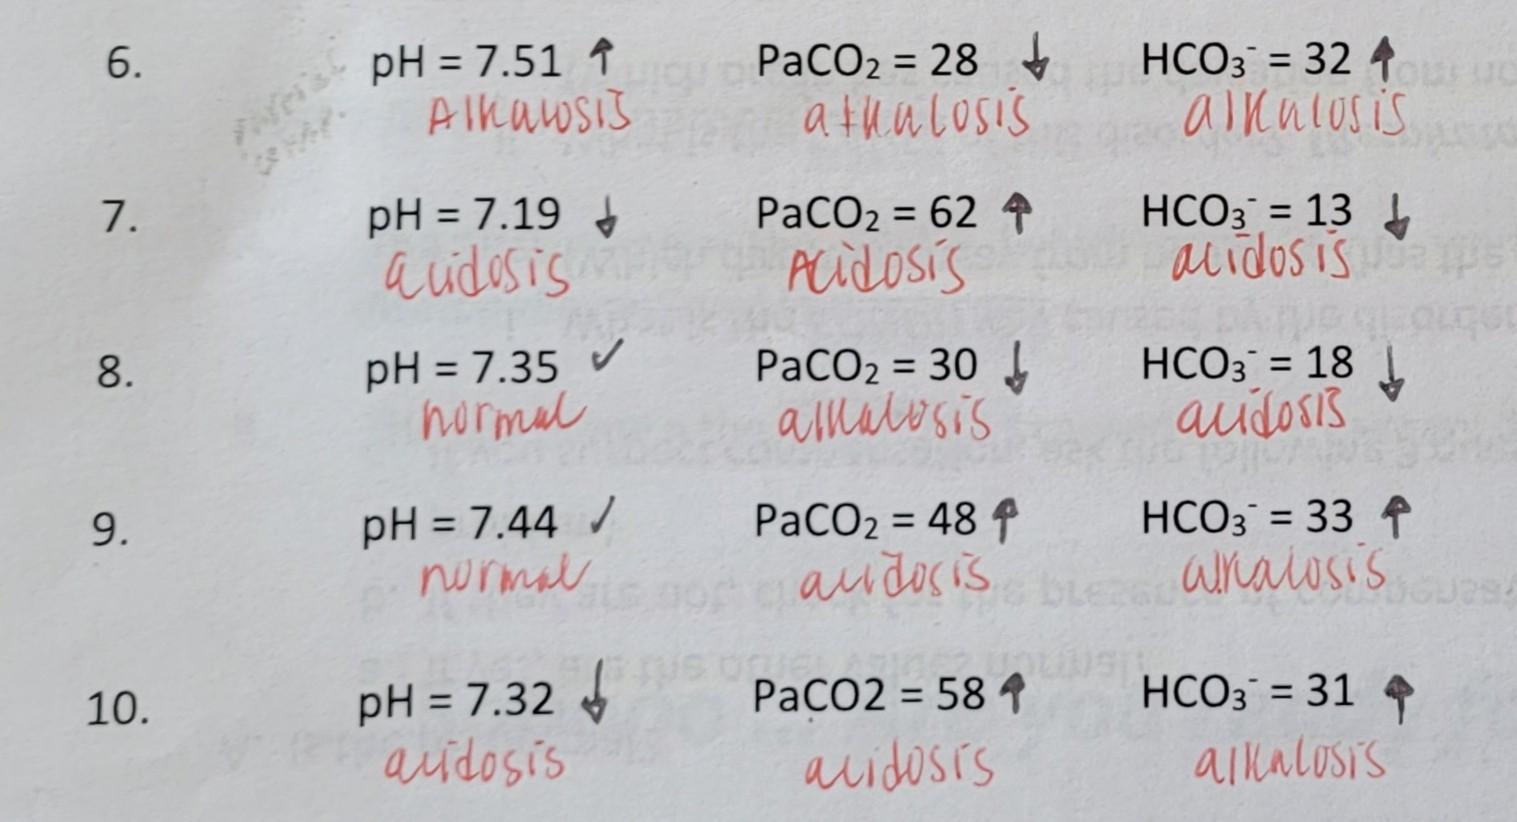 6. pH = 7.51 ↑ PaCO₂ = 28 ↓ HCO₃⁻ = 32 ↑
Alkalosis alkalosis alkalosis
7. pH = 7.19 ↓ PaCO₂ = 62 ↑ HCO₃⁻ = 13 ↓
acidosis Acidosis acidosis
8. pH = 7.35 ✓ PaCO₂ = 30 ↓ HCO₃⁻ = 18 ↓
normal alkalosis acidosis
9. pH = 7.44 ✓ PaCO₂ = 48 ↑ HCO₃⁻ = 33 ↑
normal acidosis alkalosis
10. pH = 7.32 ↓ PaCO2 = 58 ↑ HCO₃⁻ = 31 ↑
acidosis acidosis alkalosis